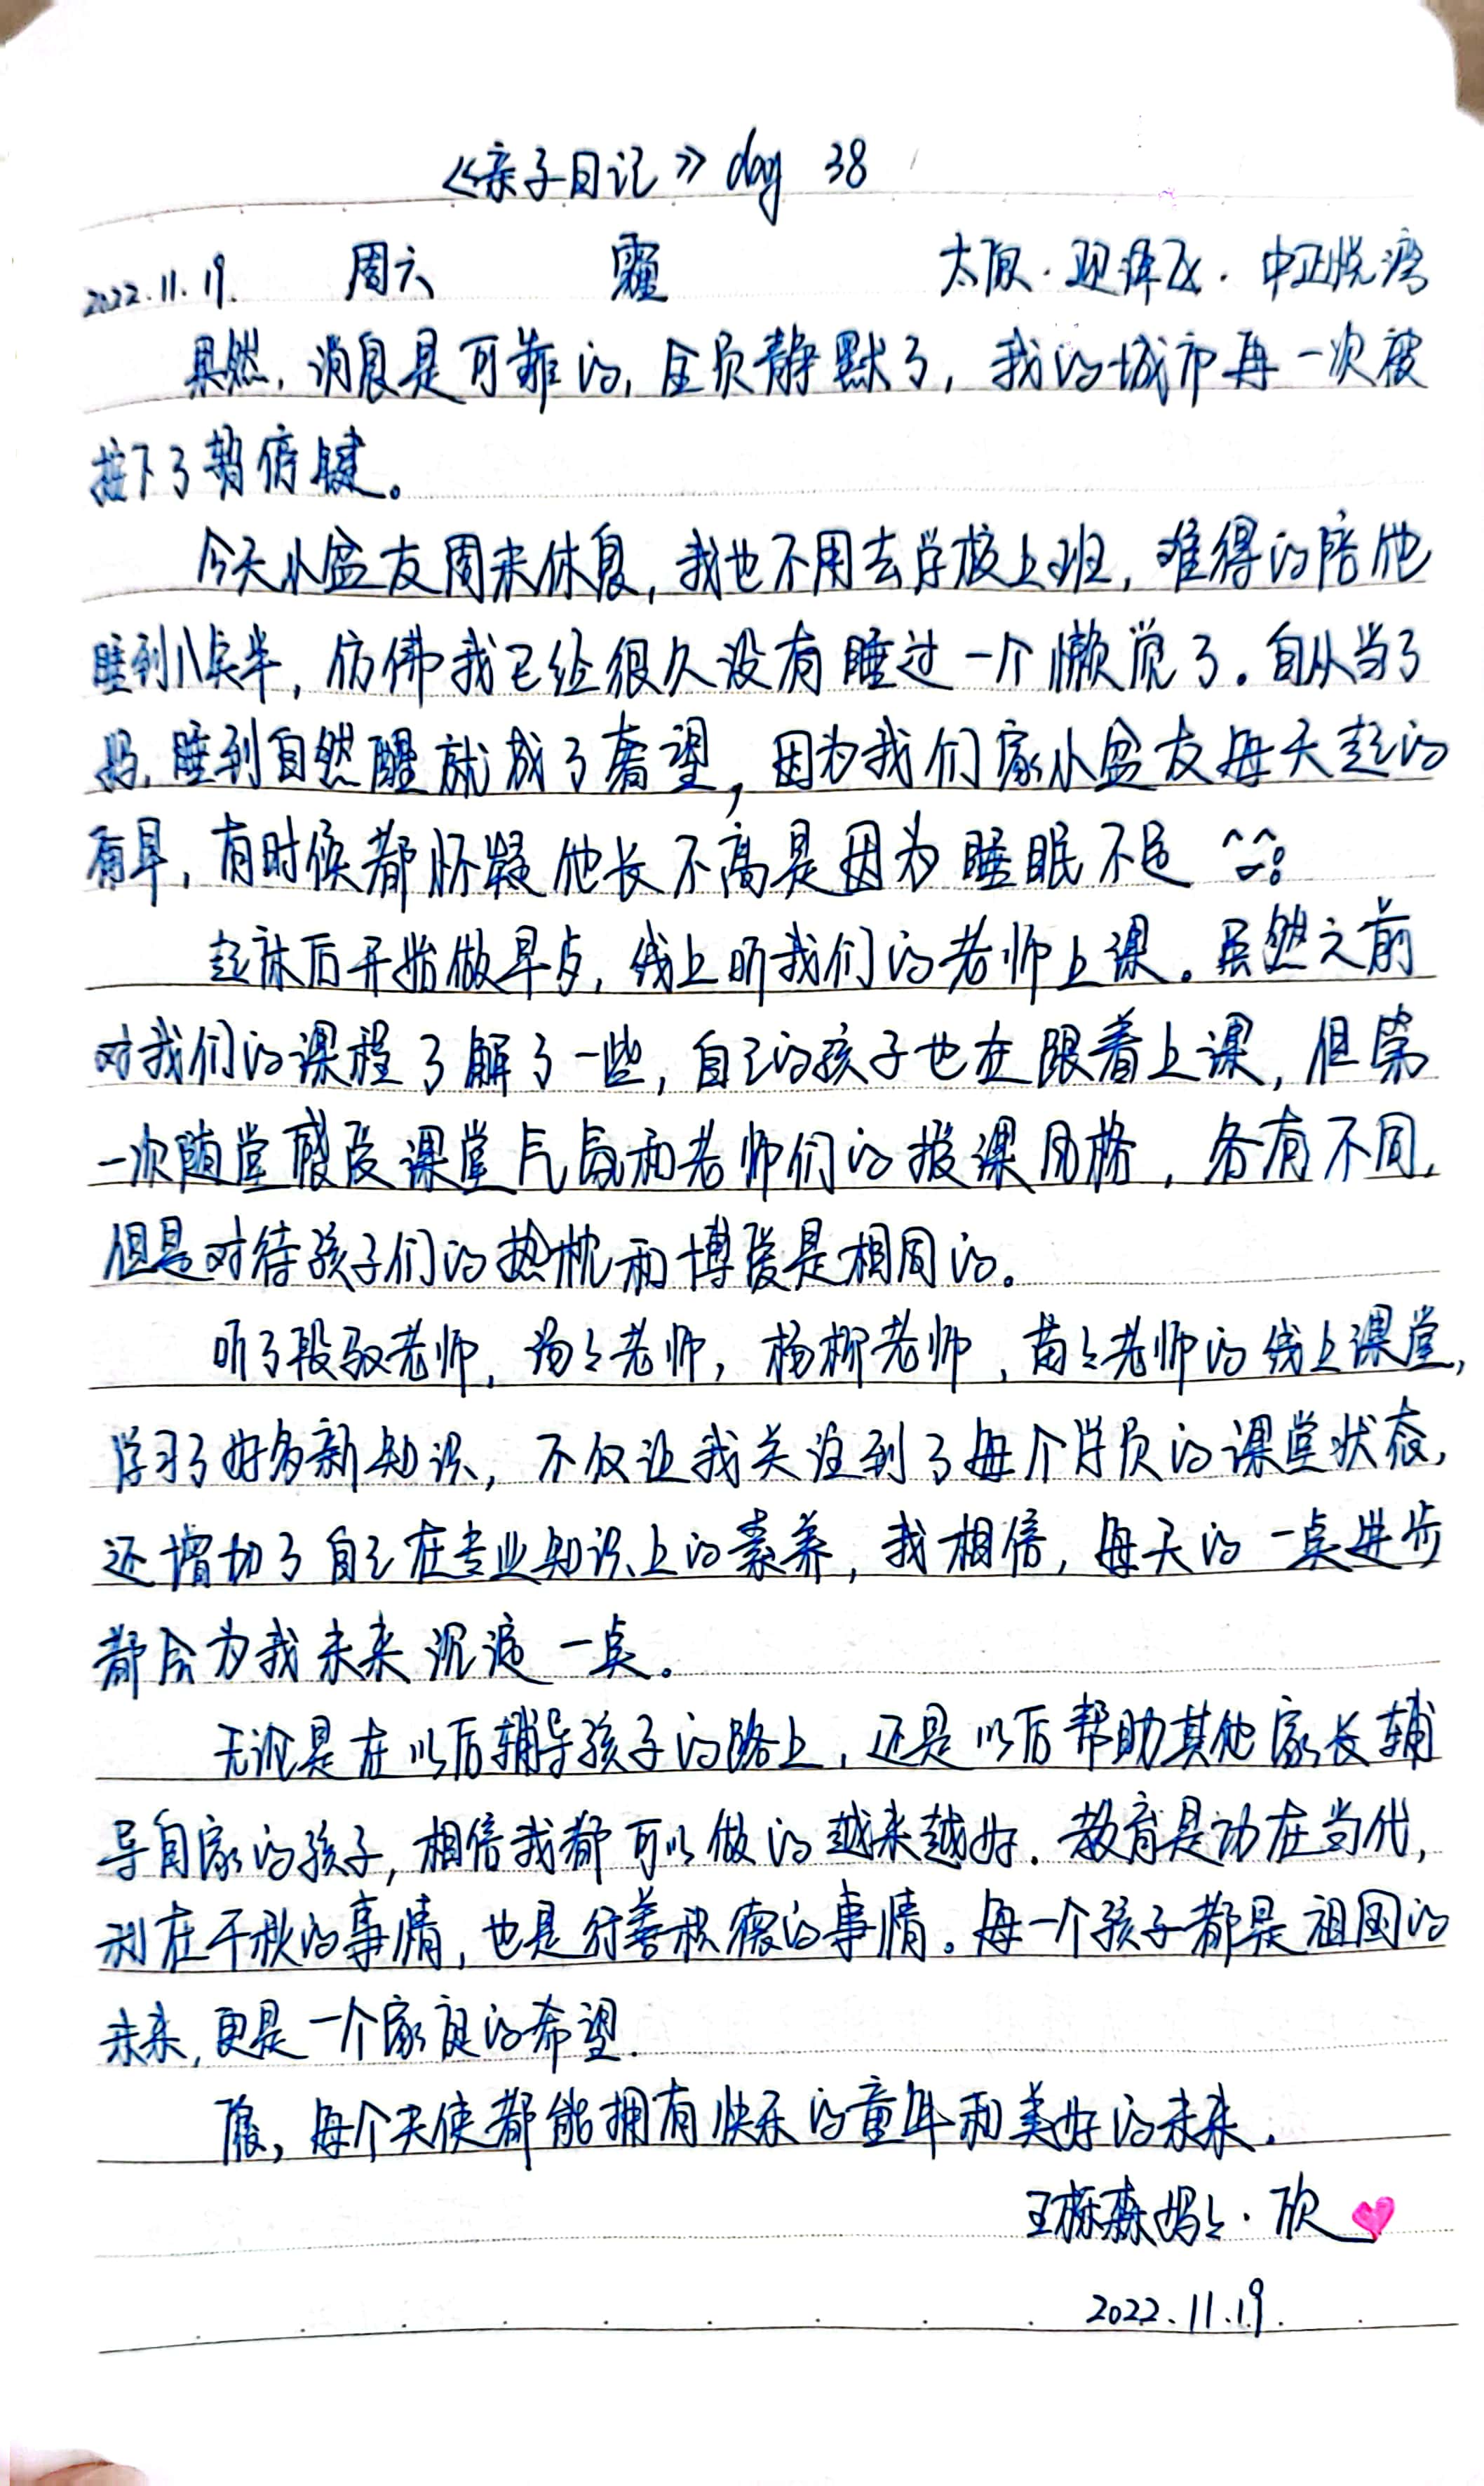 《亲子日记》day 38
2022.11.19. 周六 霾 太原·迎泽区·中正悦湾
果然，消息是可靠的，全员静默了，我的城市再一次被
按下了暂停键。
今天小盆友周末休息，我也不用去学校上班，难得的陪他
睡到八点半，仿佛我已经很久没有睡过一个懒觉了。自从当了
妈，睡到自然醒就成了奢望，因为我们家小盆友每天起的
有早，有时候都怀疑他长不高是因为睡眠不足
起床后开始做早点，线上听我们的老师上课。虽然之前
对我们的课程了解了一些，自己的孩子也在跟着上课，但第
一次随堂感受课堂气氛和老师们的授课风格，各有不同，
但是对待孩子们的热忱和博爱是相同的。
听了段驭老师，老师，杨柳老师，苗苗老师的线上课堂，
学习了好多新知识，不仅让我关注到了每个学员的课堂状态，
还增加了自己在专业知识上的素养，我相信，每天的一点进步
都会为我未来沉淀一点。
无论是在以后辅导孩子的路上，还是以后帮助其他家长辅
导自家的孩子，相信我都可以做的越来越好．教育是功在当代，
利在千秋的事情，也是行善积德的事情。每一个孩子都是祖国的
未来，更是一个家庭的希望．
愿，每个天使都能拥有快乐的童年和美好的未来．
王栎森妈妈·欣
2022.11.19.